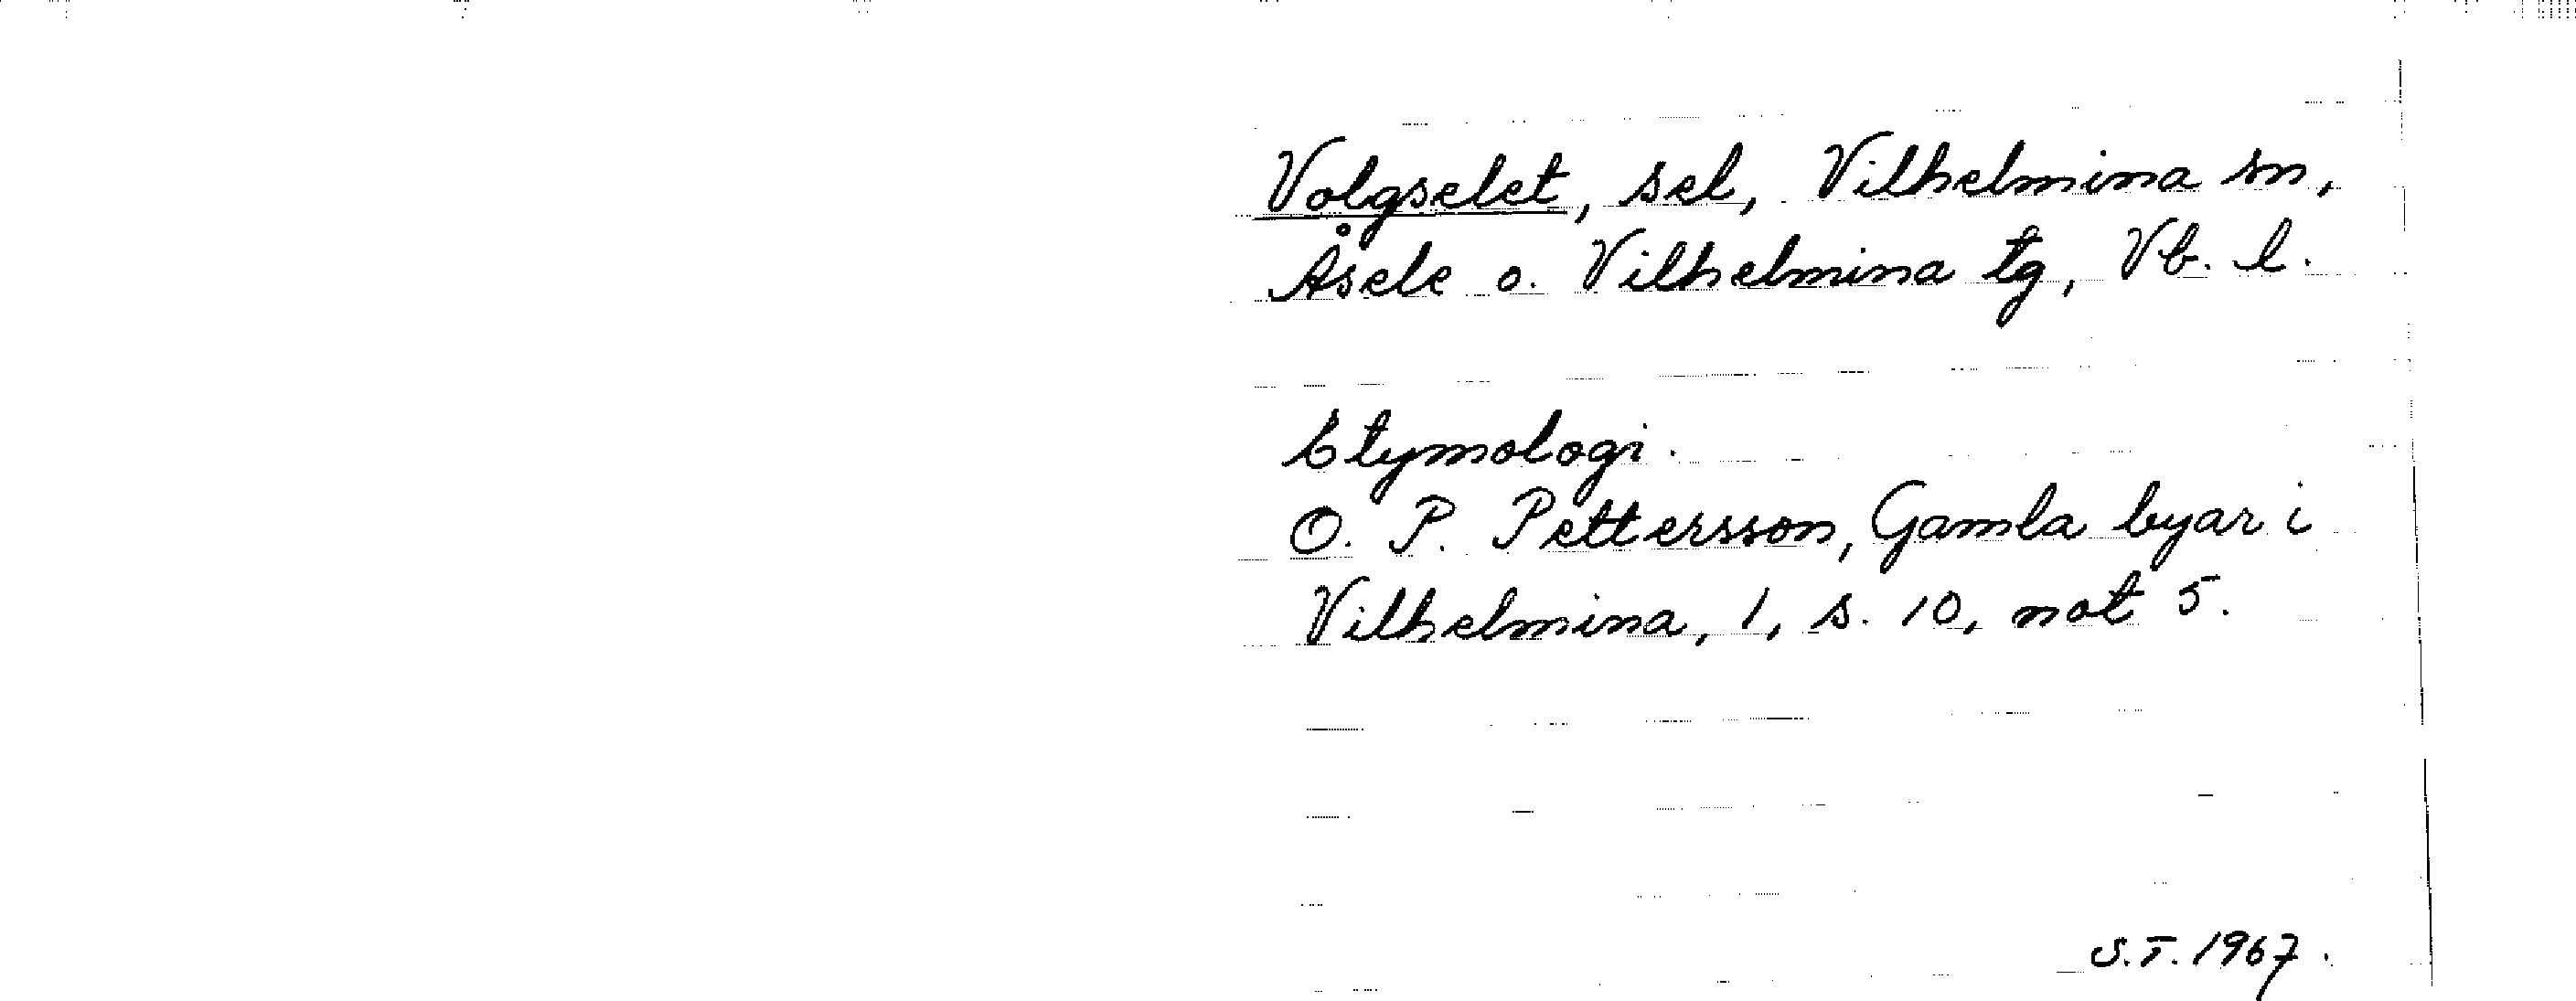 Volgselet, sel, Vilhelmina sn,
Åsele o. Vilhelmina tg, Vb. l.
Etymologi.
O. P. Pettersson, Gamla byar i
Vilhelmina, 1, s. 10, not 5.
S.T. 1967.